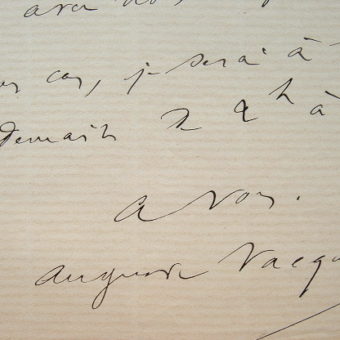 avec
cas, je serai à
demain de 2 h à
a vous.
auguste Vacqu